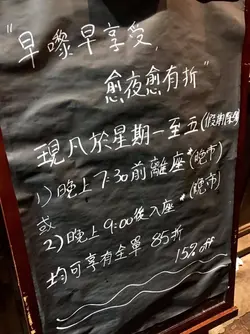 "早嚟早享受,
愈夜愈有折"
現凡於星期一至五(假期除外
1) 晚上7:30前離座*(晚市)
或
2) 晚上9:00後入座*(晚市)
均可享有全單 85折
15% off